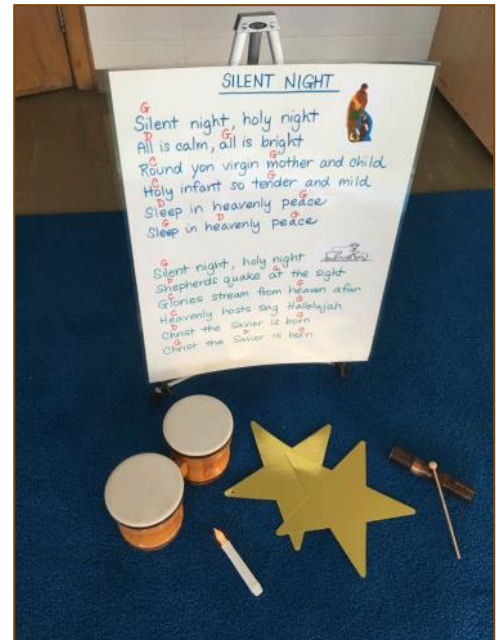 SILENT NIGHT
G
Silent night, holy night
D G
All is calm, all is bright
C G
Round yon virgin mother and child
C G
Holy infant so tender and mild
D G
Sleep in heavenly peace
G D G
Sleep in heavenly peace
G
Silent night, holy night
D G
Shepherds quake at the sight
C G
Glories stream from heaven afar
C G
Heavenly hosts sing Hallelujah
D G
Christ the Savior is born
G D G
Christ the Savior is born